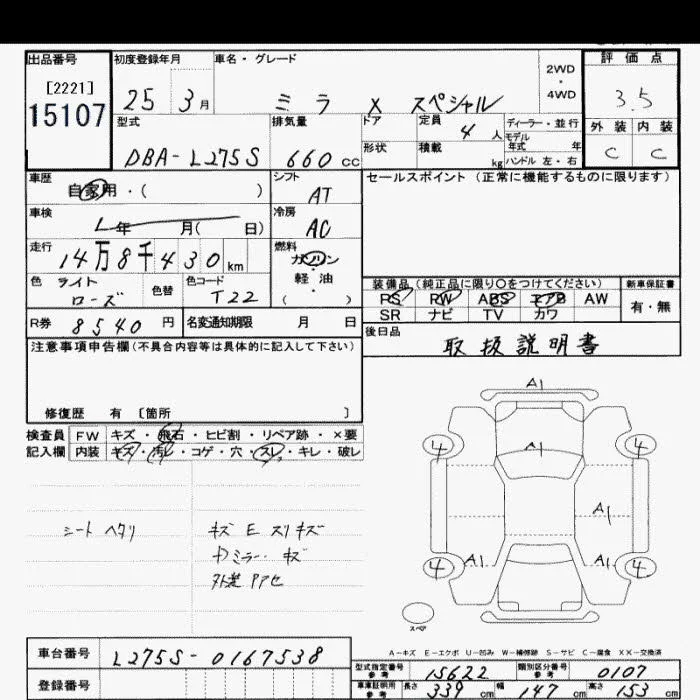 出品番号 初度登録年月 車名・グレード 2WD ・ 4WD 評価点
[2221]
15107 25 3月 ミラ X スペシャル 3.5
型式 排気量 ドア 定員 4人 ディーラー・並行 外装 内装
モデル年式 年
DBA-L275S 660cc 形状 積載 kg ハンドル 左・右 C C
車歴 シフト セールスポイント (正常に機能するものに限ります)
自家用・( ) AT
車検 冷房
年 月( 日) AC
走行 燃料
14万8千430km ガソリン
色 ライトローズ 色替 色コード T22 軽油
( )
装備品(純正品に限り○をつけてください) 新車保証書
PS PW ABS エアB AW 有・無
SR ナビ TV カワ
R券 8540円 名変通知期限 月 日
後日品
取扱説明書
注意事項申告欄(不具合内容等は具体的に記入して下さい)
修復歴 有 〔箇所 〕
検査員 FW キズ・飛石・ヒビ割・リペア跡・×要
記入欄 内装 キズ・汚・コゲ・穴・スレ・キレ・破レ
A1
4 A1 4
A1
シート ヘタリ キズ E スリキズ
ミラー キズ
A1 A1
4 4
スペア
A-キズ E-エクボ U-凹み W-補修跡 S-サビ C-腐食 XX-交換済
車台番号 L275S-0167538
登録番号
型式指定番号 参考 15622 類別区分番号 参考 0107
車庫証明用 参考 長さ 339cm 幅 147cm 高さ 153cm